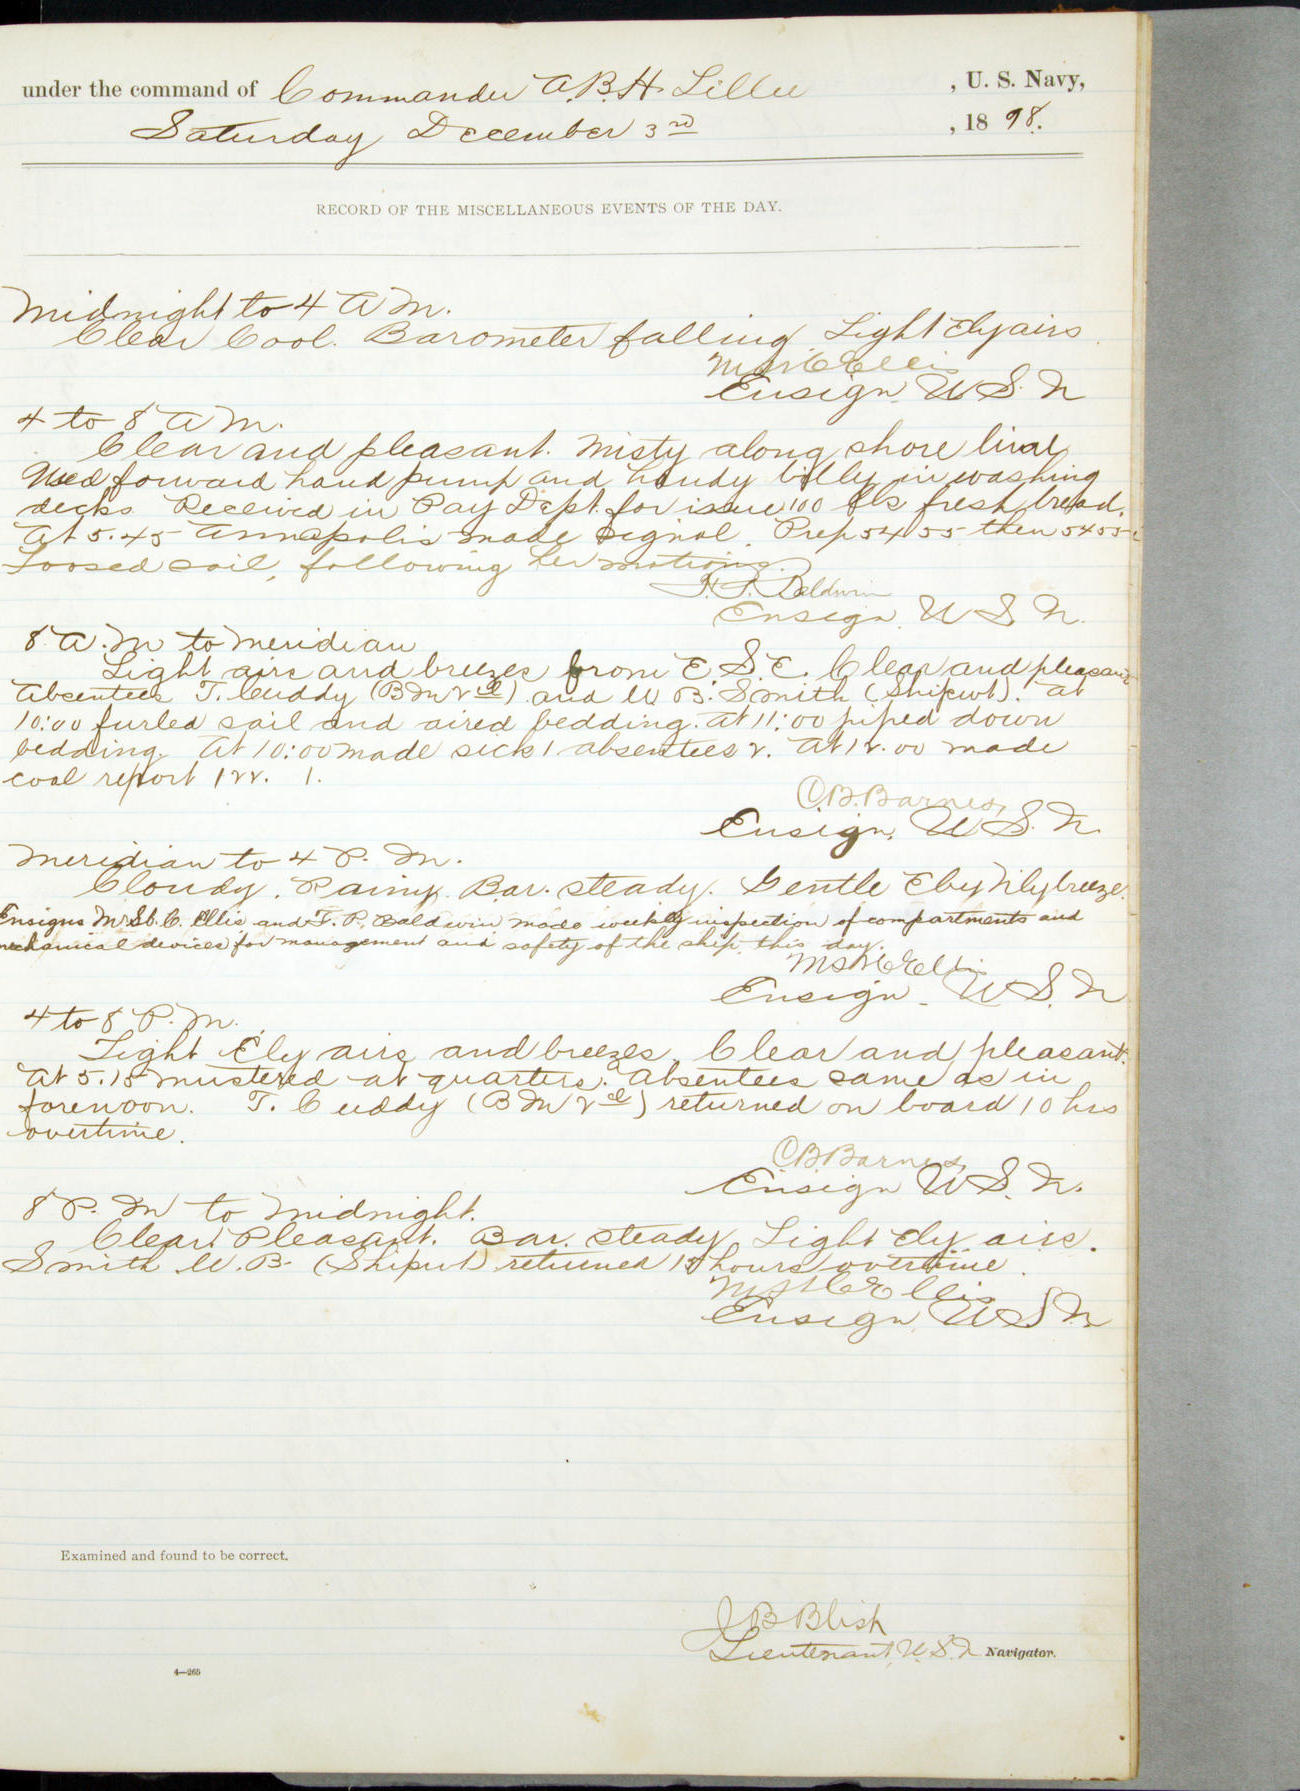 under the command of Commander A.B.H. Lillie , U. S. Navy,
Saturday December 3rd , 1898.
RECORD OF THE MISCELLANEOUS EVENTS OF THE DAY.
Midnight to 4 A M.
Clear Cool. Barometer falling. Light Ely airs.
M St C Ellis
Ensign U S. N
4 to 8 A M.
Clear and pleasant. Misty along shore line.
Used forward hand pump and handy billy in washing
decks Received in Pay Dept. for issue 100 lbs fresh bread.
At 5.45 Annapolis made signal. Prep 5455 then 5455
Loosed sail, following her motions.
F. P. Baldwin
Ensign. U S N.
8 A.M to Meridian
Light airs and breezes from E.S.E. Clear and pleasant
Absentees T. Cuddy (B M 2cl) and W B. Smith (Shipwt). At
10:00 furled sail and aired bedding. At 11:00 piped down
bedding. At 10:00 made sick 1 absentees 2. At 12.00 made
coal report 122. 1.
C.B. Barnes,
Ensign. U S. N.
Meridian to 4 P. M.
Cloudy. Rainy. Bar. steady. Gentle E by Nly breeze.
Ensigns M. St. C. Ellis and F. P. Baldwin made weekly inspection of compartments and
mechanical devices for management and safety of the ship this day.
M St C Ellis
Ensign. U S. N
4 to 8 P. M.
Light Ely airs and breezes. Clear and pleasant.
At 5.15 mustered at quarters. Absentees same as in
forenoon. T. Cuddy (B M 2cl) returned on board 10 hrs
overtime.
C B Barnes,
Ensign U S. N.
8 P. M to Midnight.
Clear. Pleasant. Bar. steady. Light Ely airs.
Smith W. B. (Shipwt) returned hours overtime.
M St C Ellis
Ensign U S N
Examined and found to be correct.
J B Blish
Lieutenant, U. S. N Navigator.
4—265